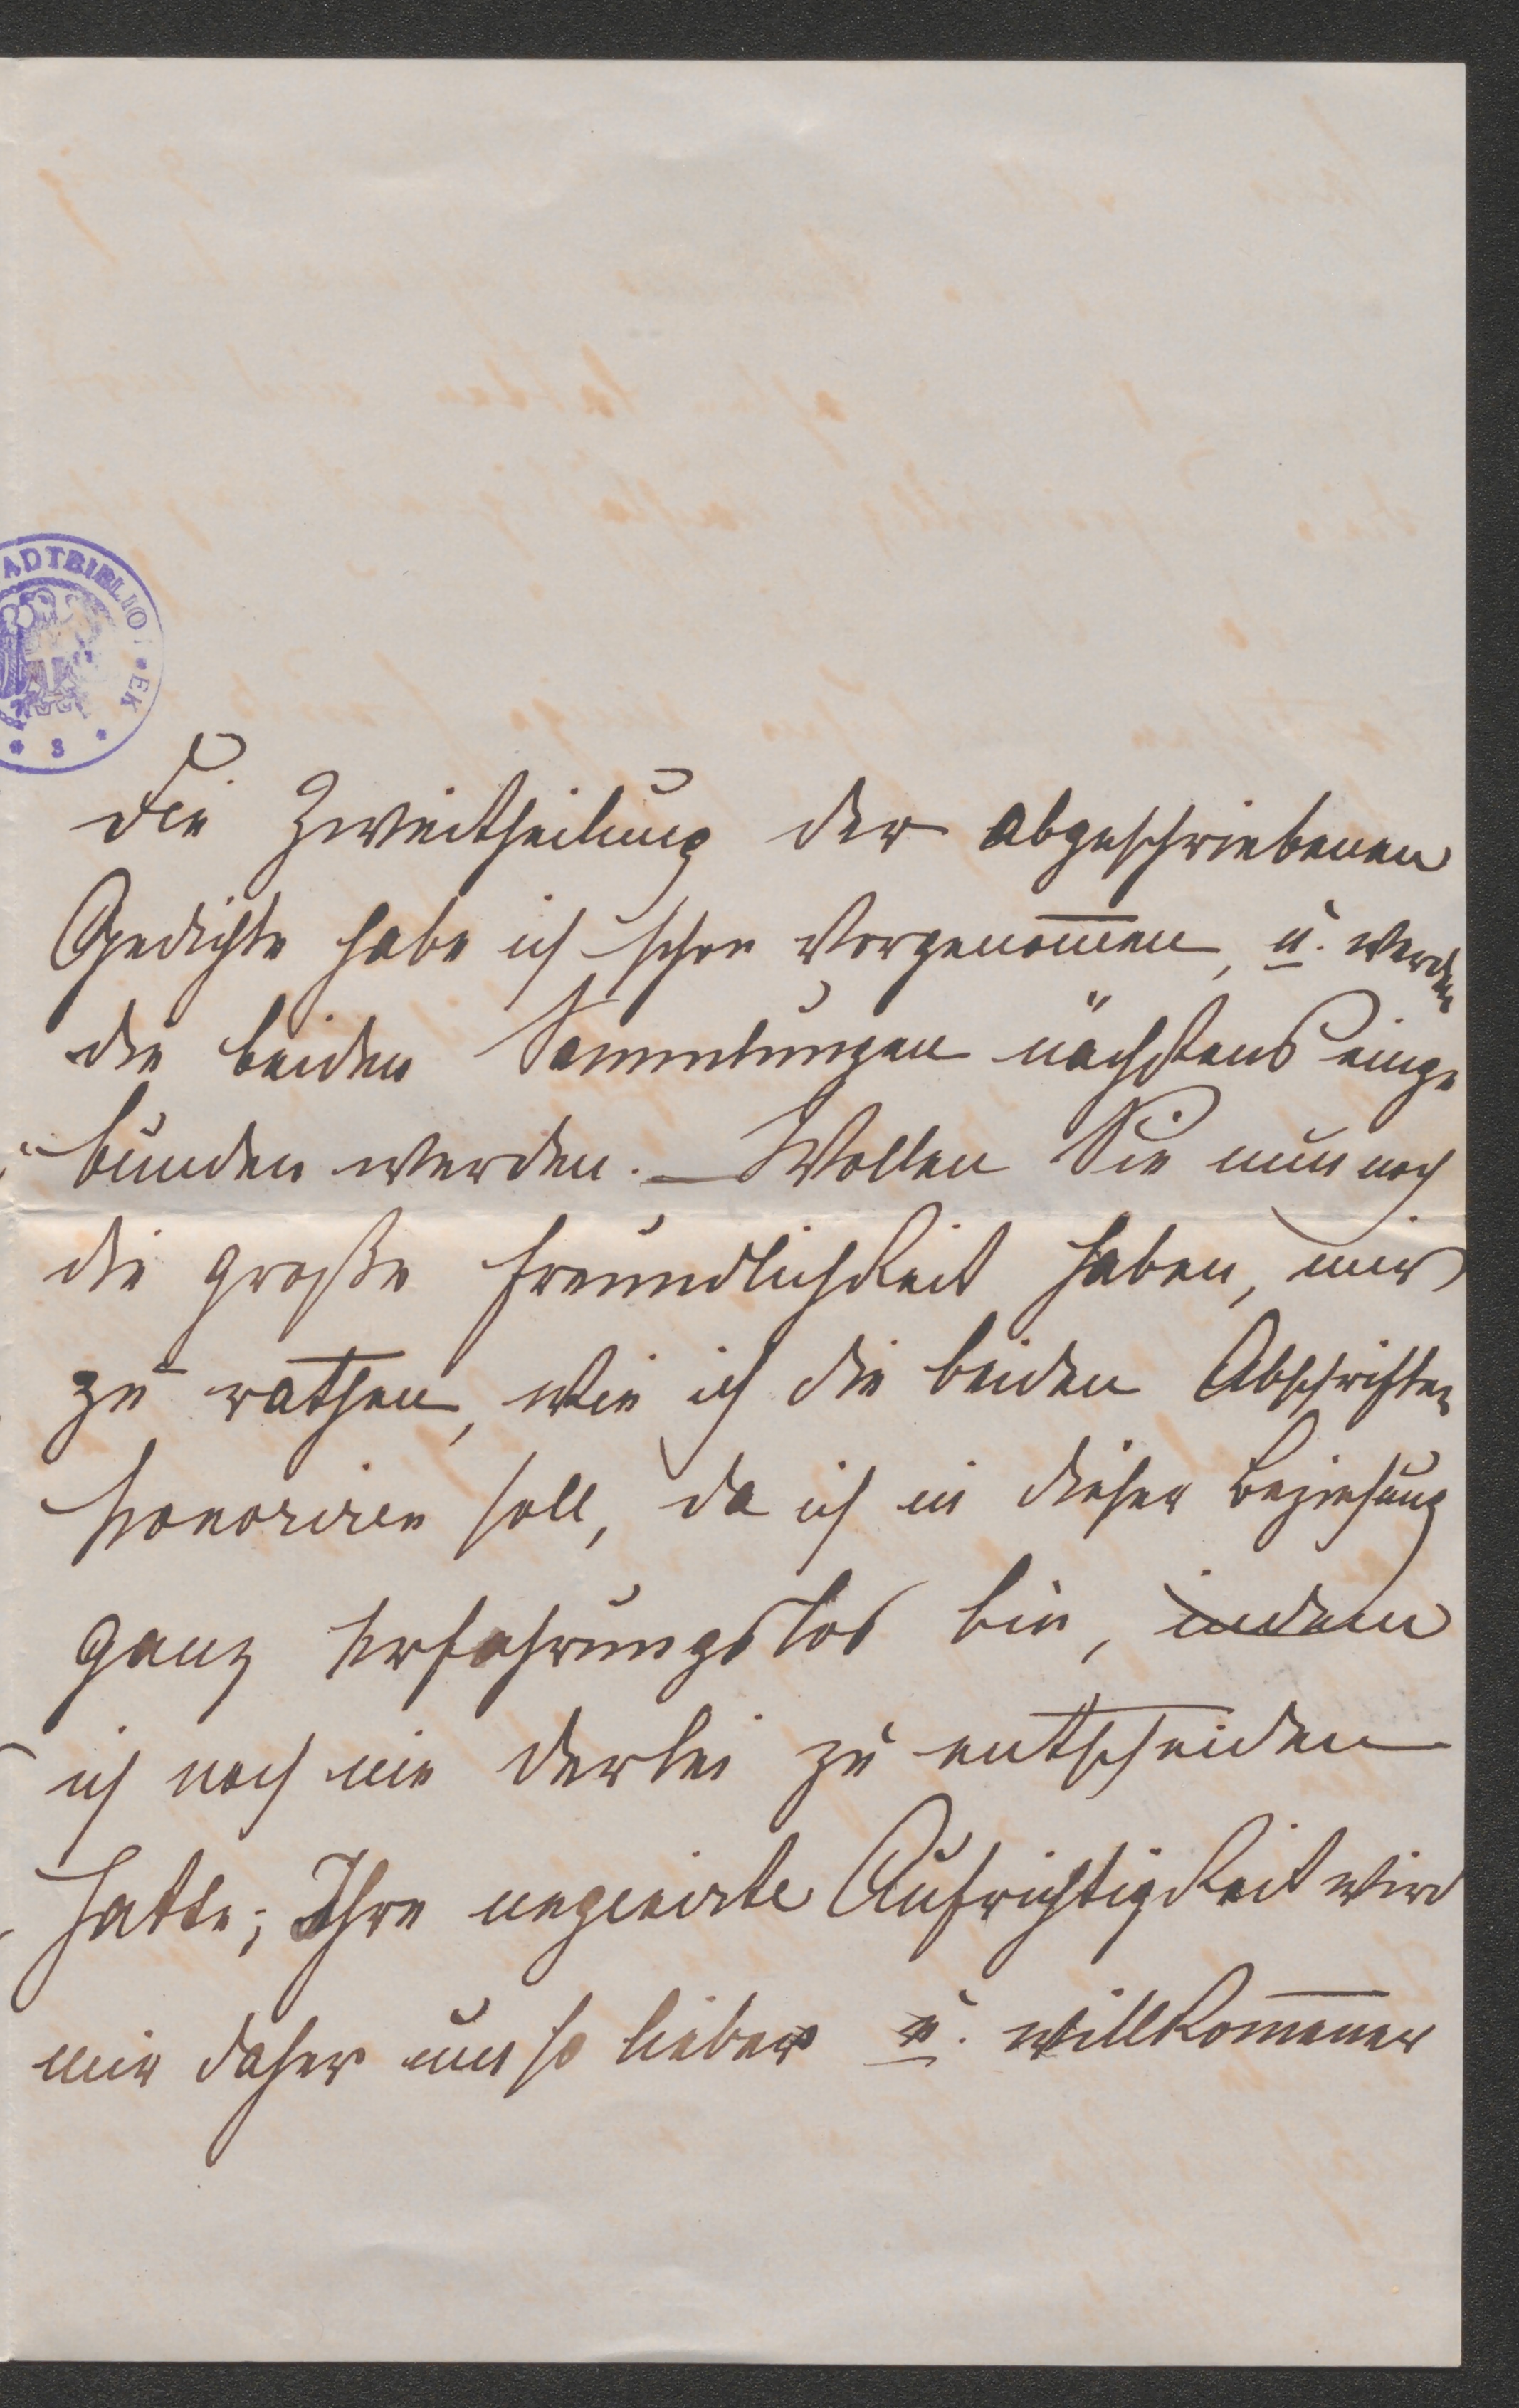 ADTBIBLIO EK
* S *
Die Zweitheilung der abgeschriebenen
Gedichte habe ich schon vorgenom̅en, u. werden
die beiden Sammlungen nächstens einge
bunden werden. – Wollen Sie nun noch
die große Freundlichkeit haben, mir
zu rathen, wie ich die beiden Abschriften
honoriren soll, da ich in dieser Beziehung
ganz erfahrungslos bin, indem
ich noch nie derlei zu entscheiden
hatte; Ihre ungenirte Aufrichtigkeit wird
mir daher um so lieber u. willkom̅ener